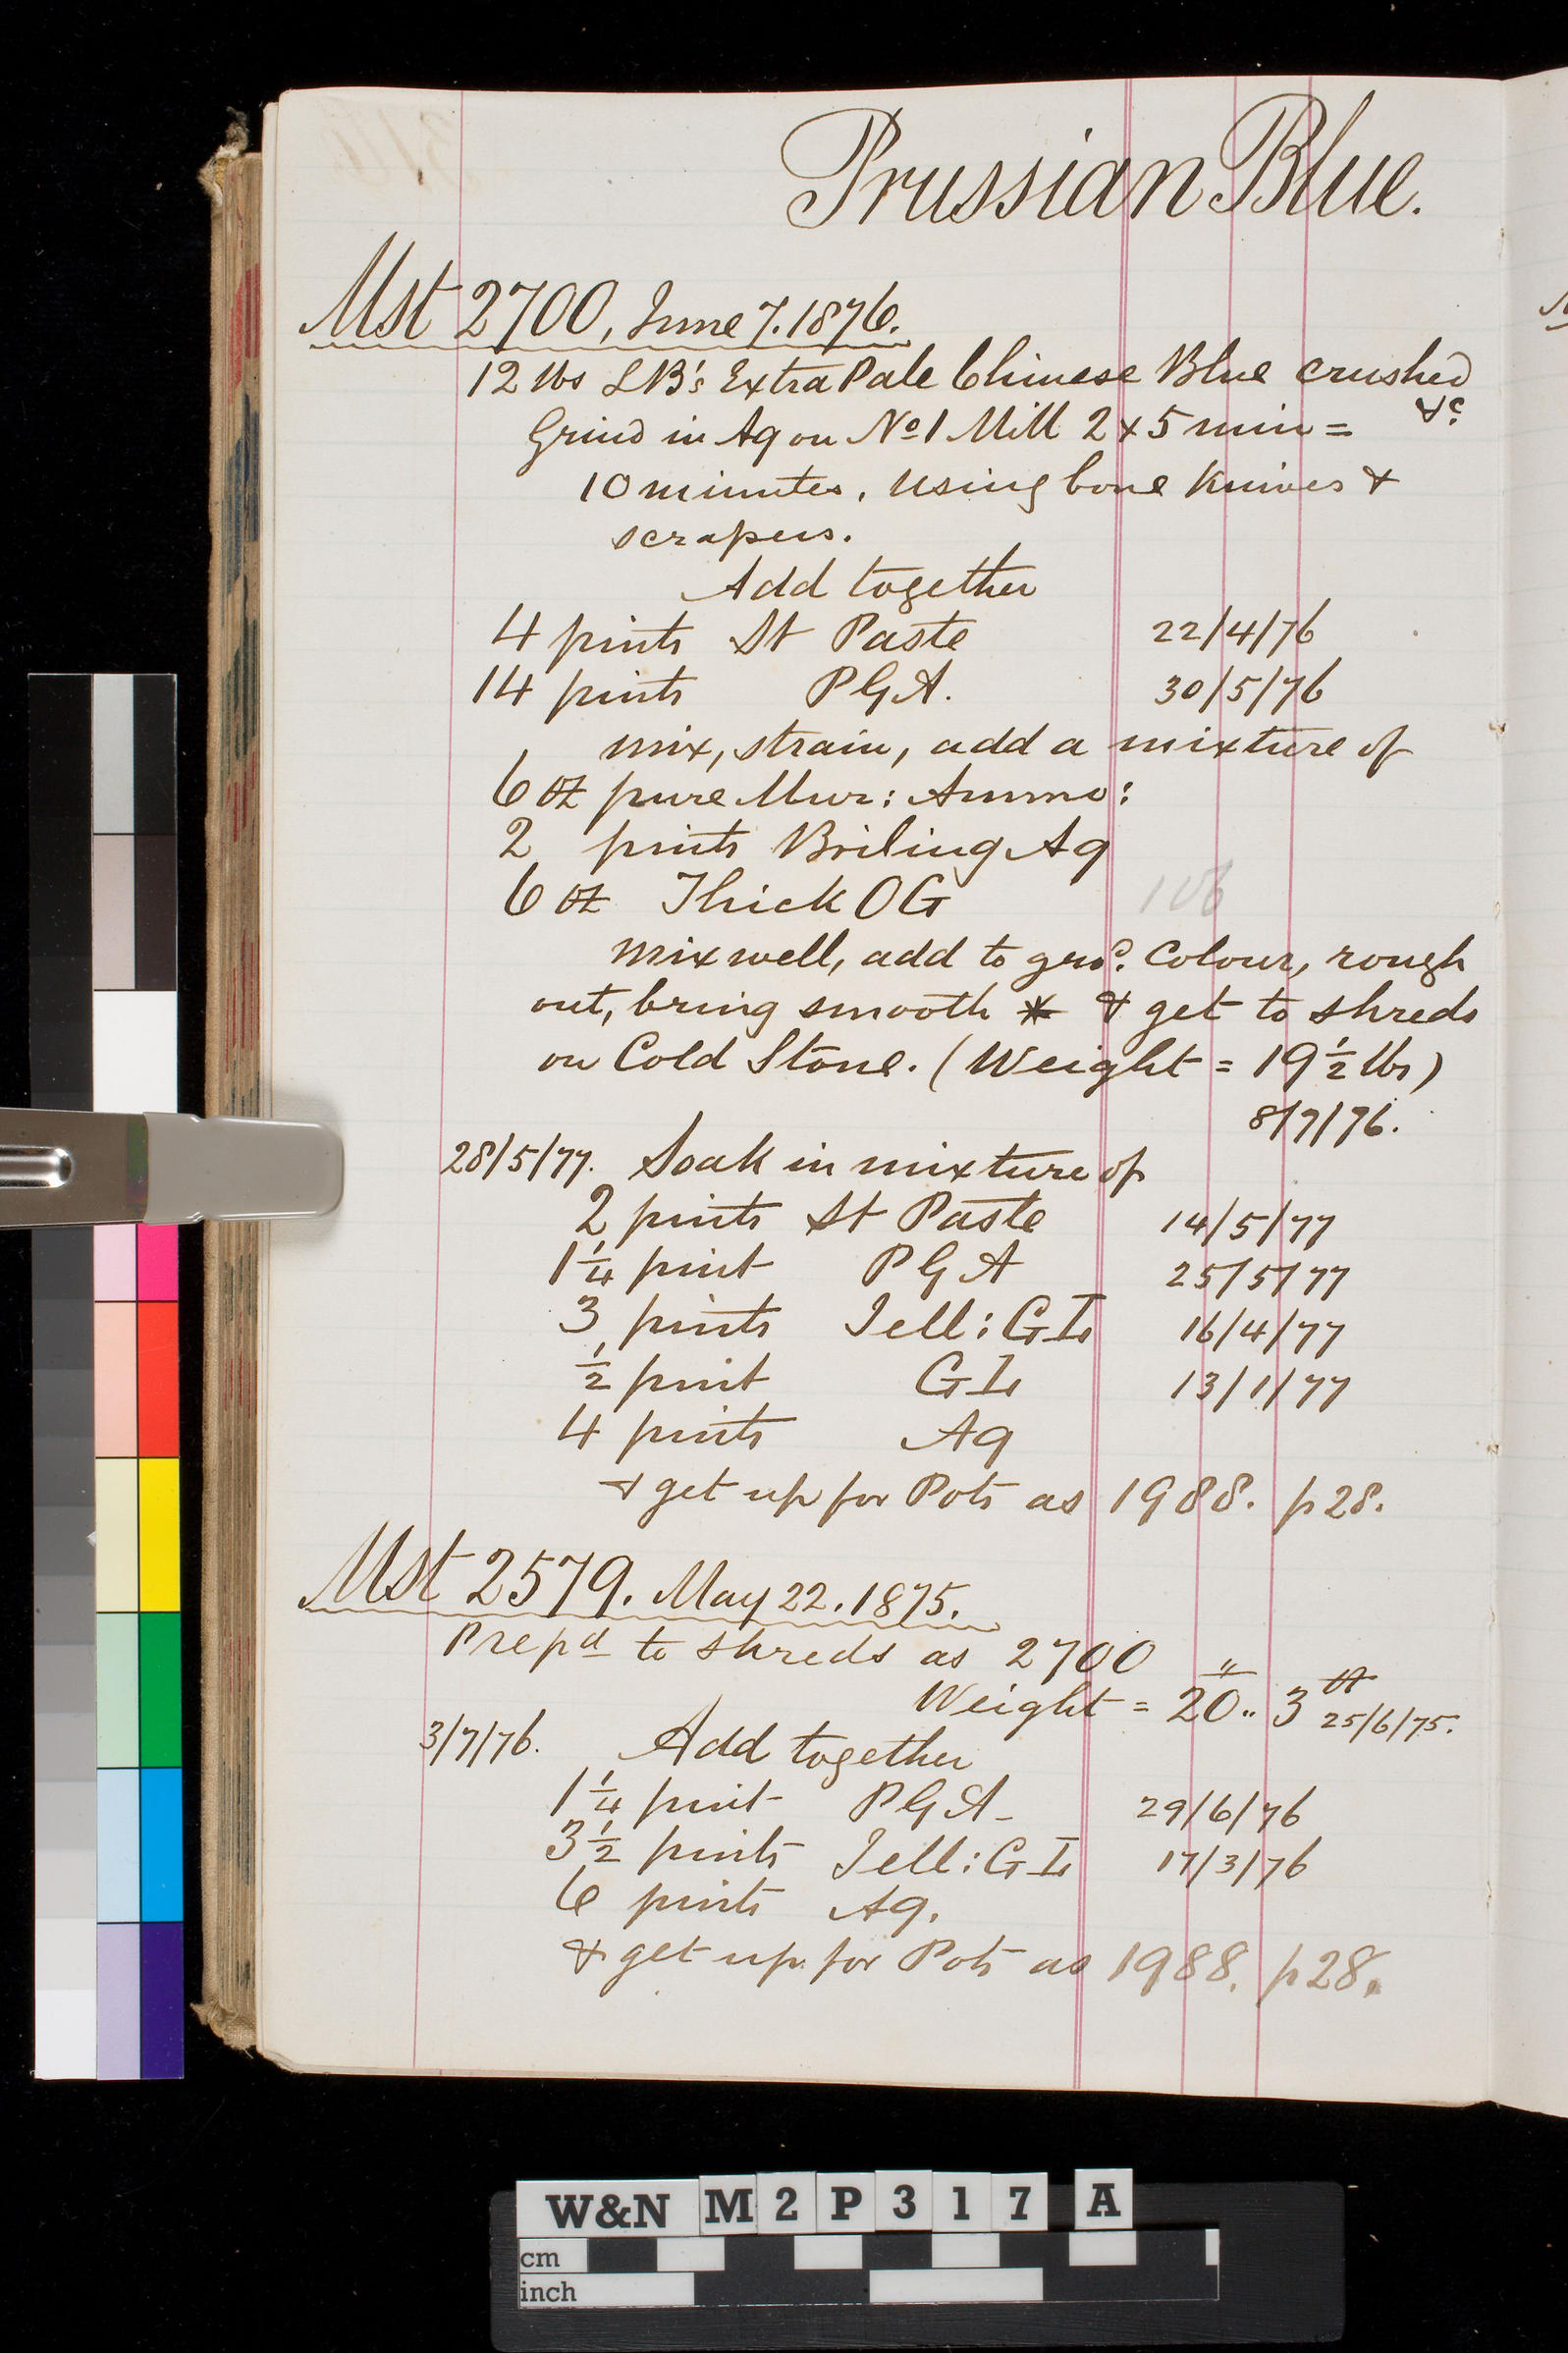 Prussian Blue.
Mst 2700, June 7. 1876.
12 lbs LB's Extra Pale Chinese Blue crushed
&c.
Grind in Aq on No 1 Mill 2 x 5 min =
10 minutes, using bone knives &
scrapers.
Add together
4 pints St Paste 22/4/76
14 pints PGA. 30/5/76
mix, strain, add a mixture of
6 oz pure Mur: Ammo:
2 pints Boiling Aq
6 oz Thick OG 106
mix well, add to grd. Colour, rough
out, bring smooth * & get to shreds
on Cold Stone. (Weight = 19 1/2 lbs)
8/7/76.
28/5/77. Soak in mixture of
2 pints St Paste 14/5/77
1 1/4 pint PGA 25/5/77
3 pints Jell: GL 16/4/77
1/2 pint GL 13/1/77
4 pints Aq
& get up for Pots as 1988. p28.
Mst 2579. May 22. 1875.
Prepd to shreds as 2700
Weight = 20 .. 3 25/6/75.
3/7/76. Add together
1 1/4 pint PGA - 29/6/76
3 1/2 pints Jell: GL 17/3/76
6 pints Aq.
& get up for Pots as 1988. p28.
W&N M2P317 A
cm
inch